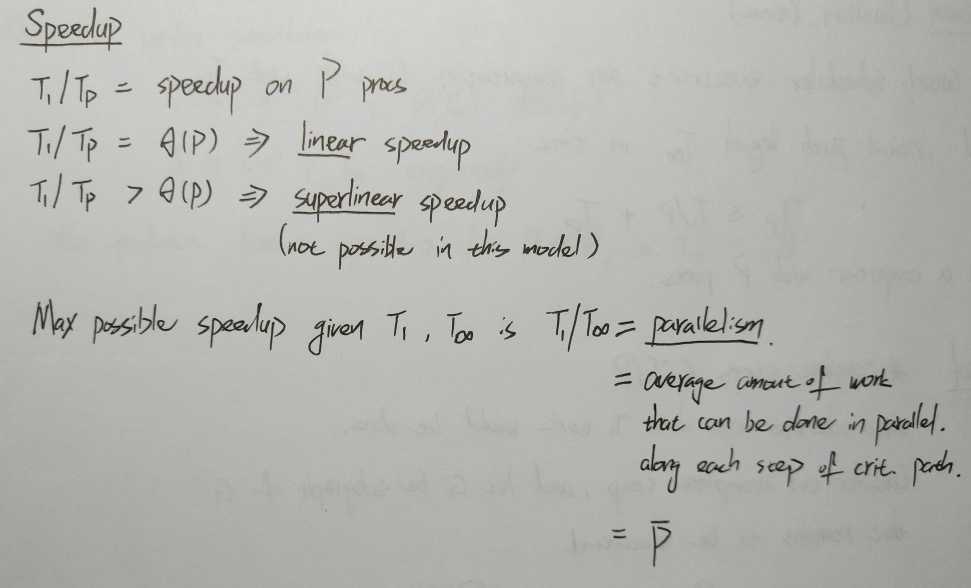 Speedup
T₁/Tp = speedup on P procs
T₁/Tp = θ(P) ⇒ linear speedup
T₁/Tp > θ(P) ⇒ superlinear speedup
(not possible in this model)
Max possible speedup given T₁, T∞ is T₁/T∞ = parallelism.
= average amout of work
that can be done in parallel.
along each step of crit. path.
= P̄